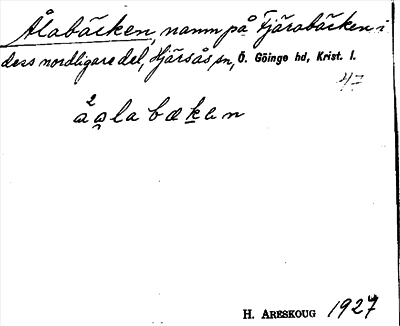 Ålabäcken, namn på Fjärabäcken i
dess nordligare del, Hjärsås sn, Ö. Göinge hd, Krist. l.
47
H. Areskoug 1927